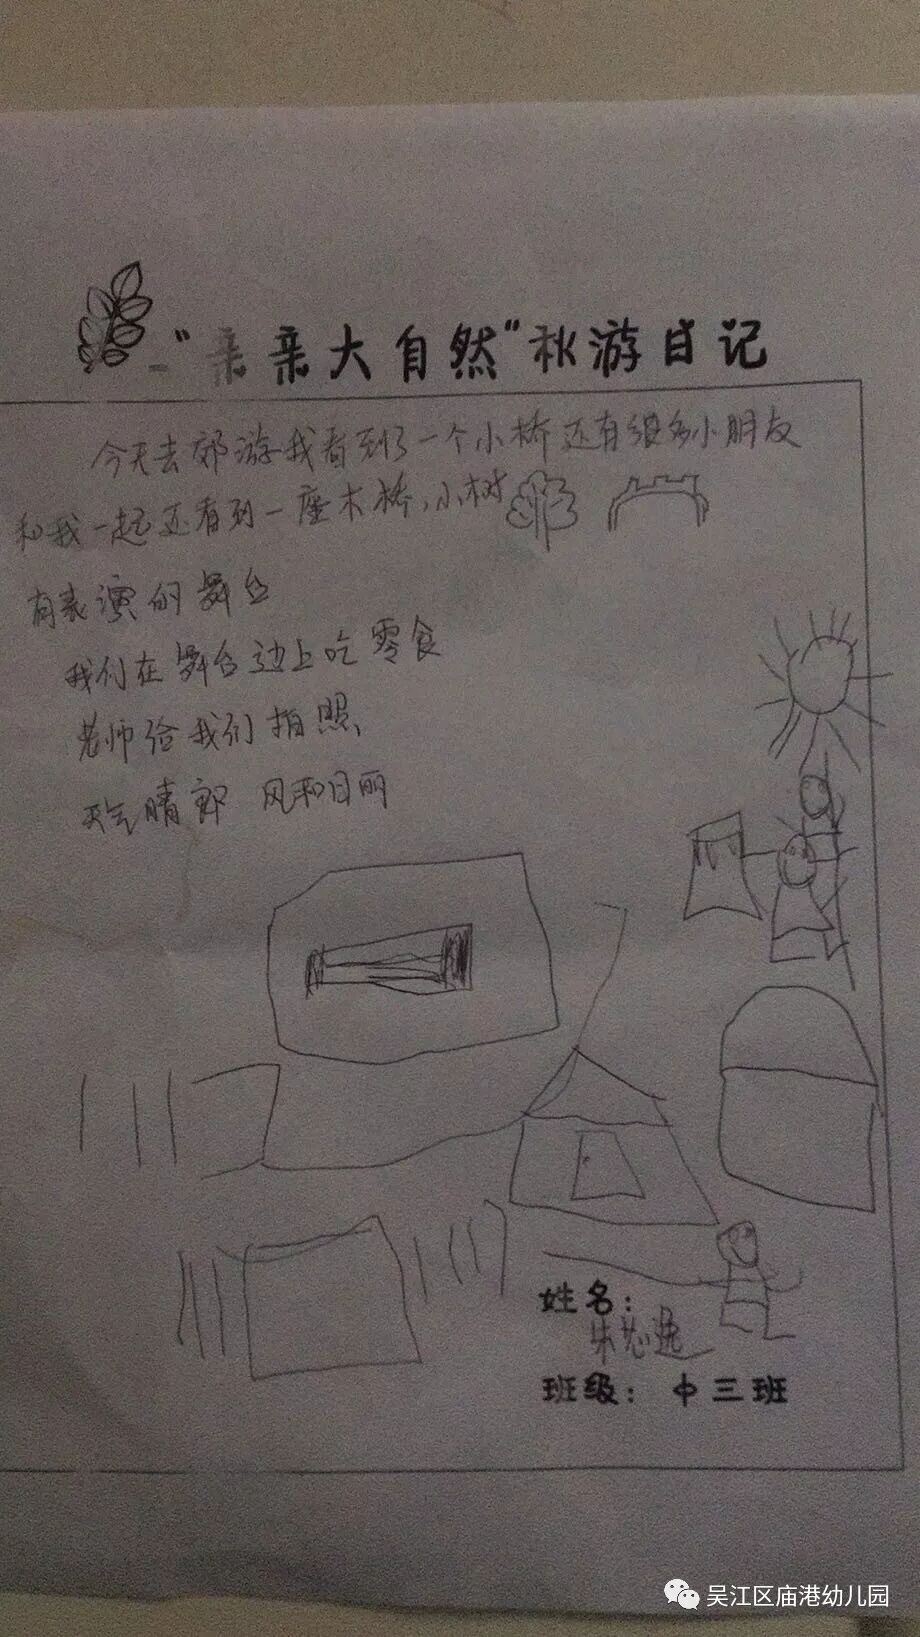 “亲亲大自然”秋游日记
今天去郊游我看到了一个小桥还有很多小朋友
和我一起还看到一座木桥,小树
有表演的舞台
我们在舞台边上吃零食
老师给我们拍照,
天气晴郎 风和日丽
姓名:
朱
班级:中三班
吴江区庙港幼儿园